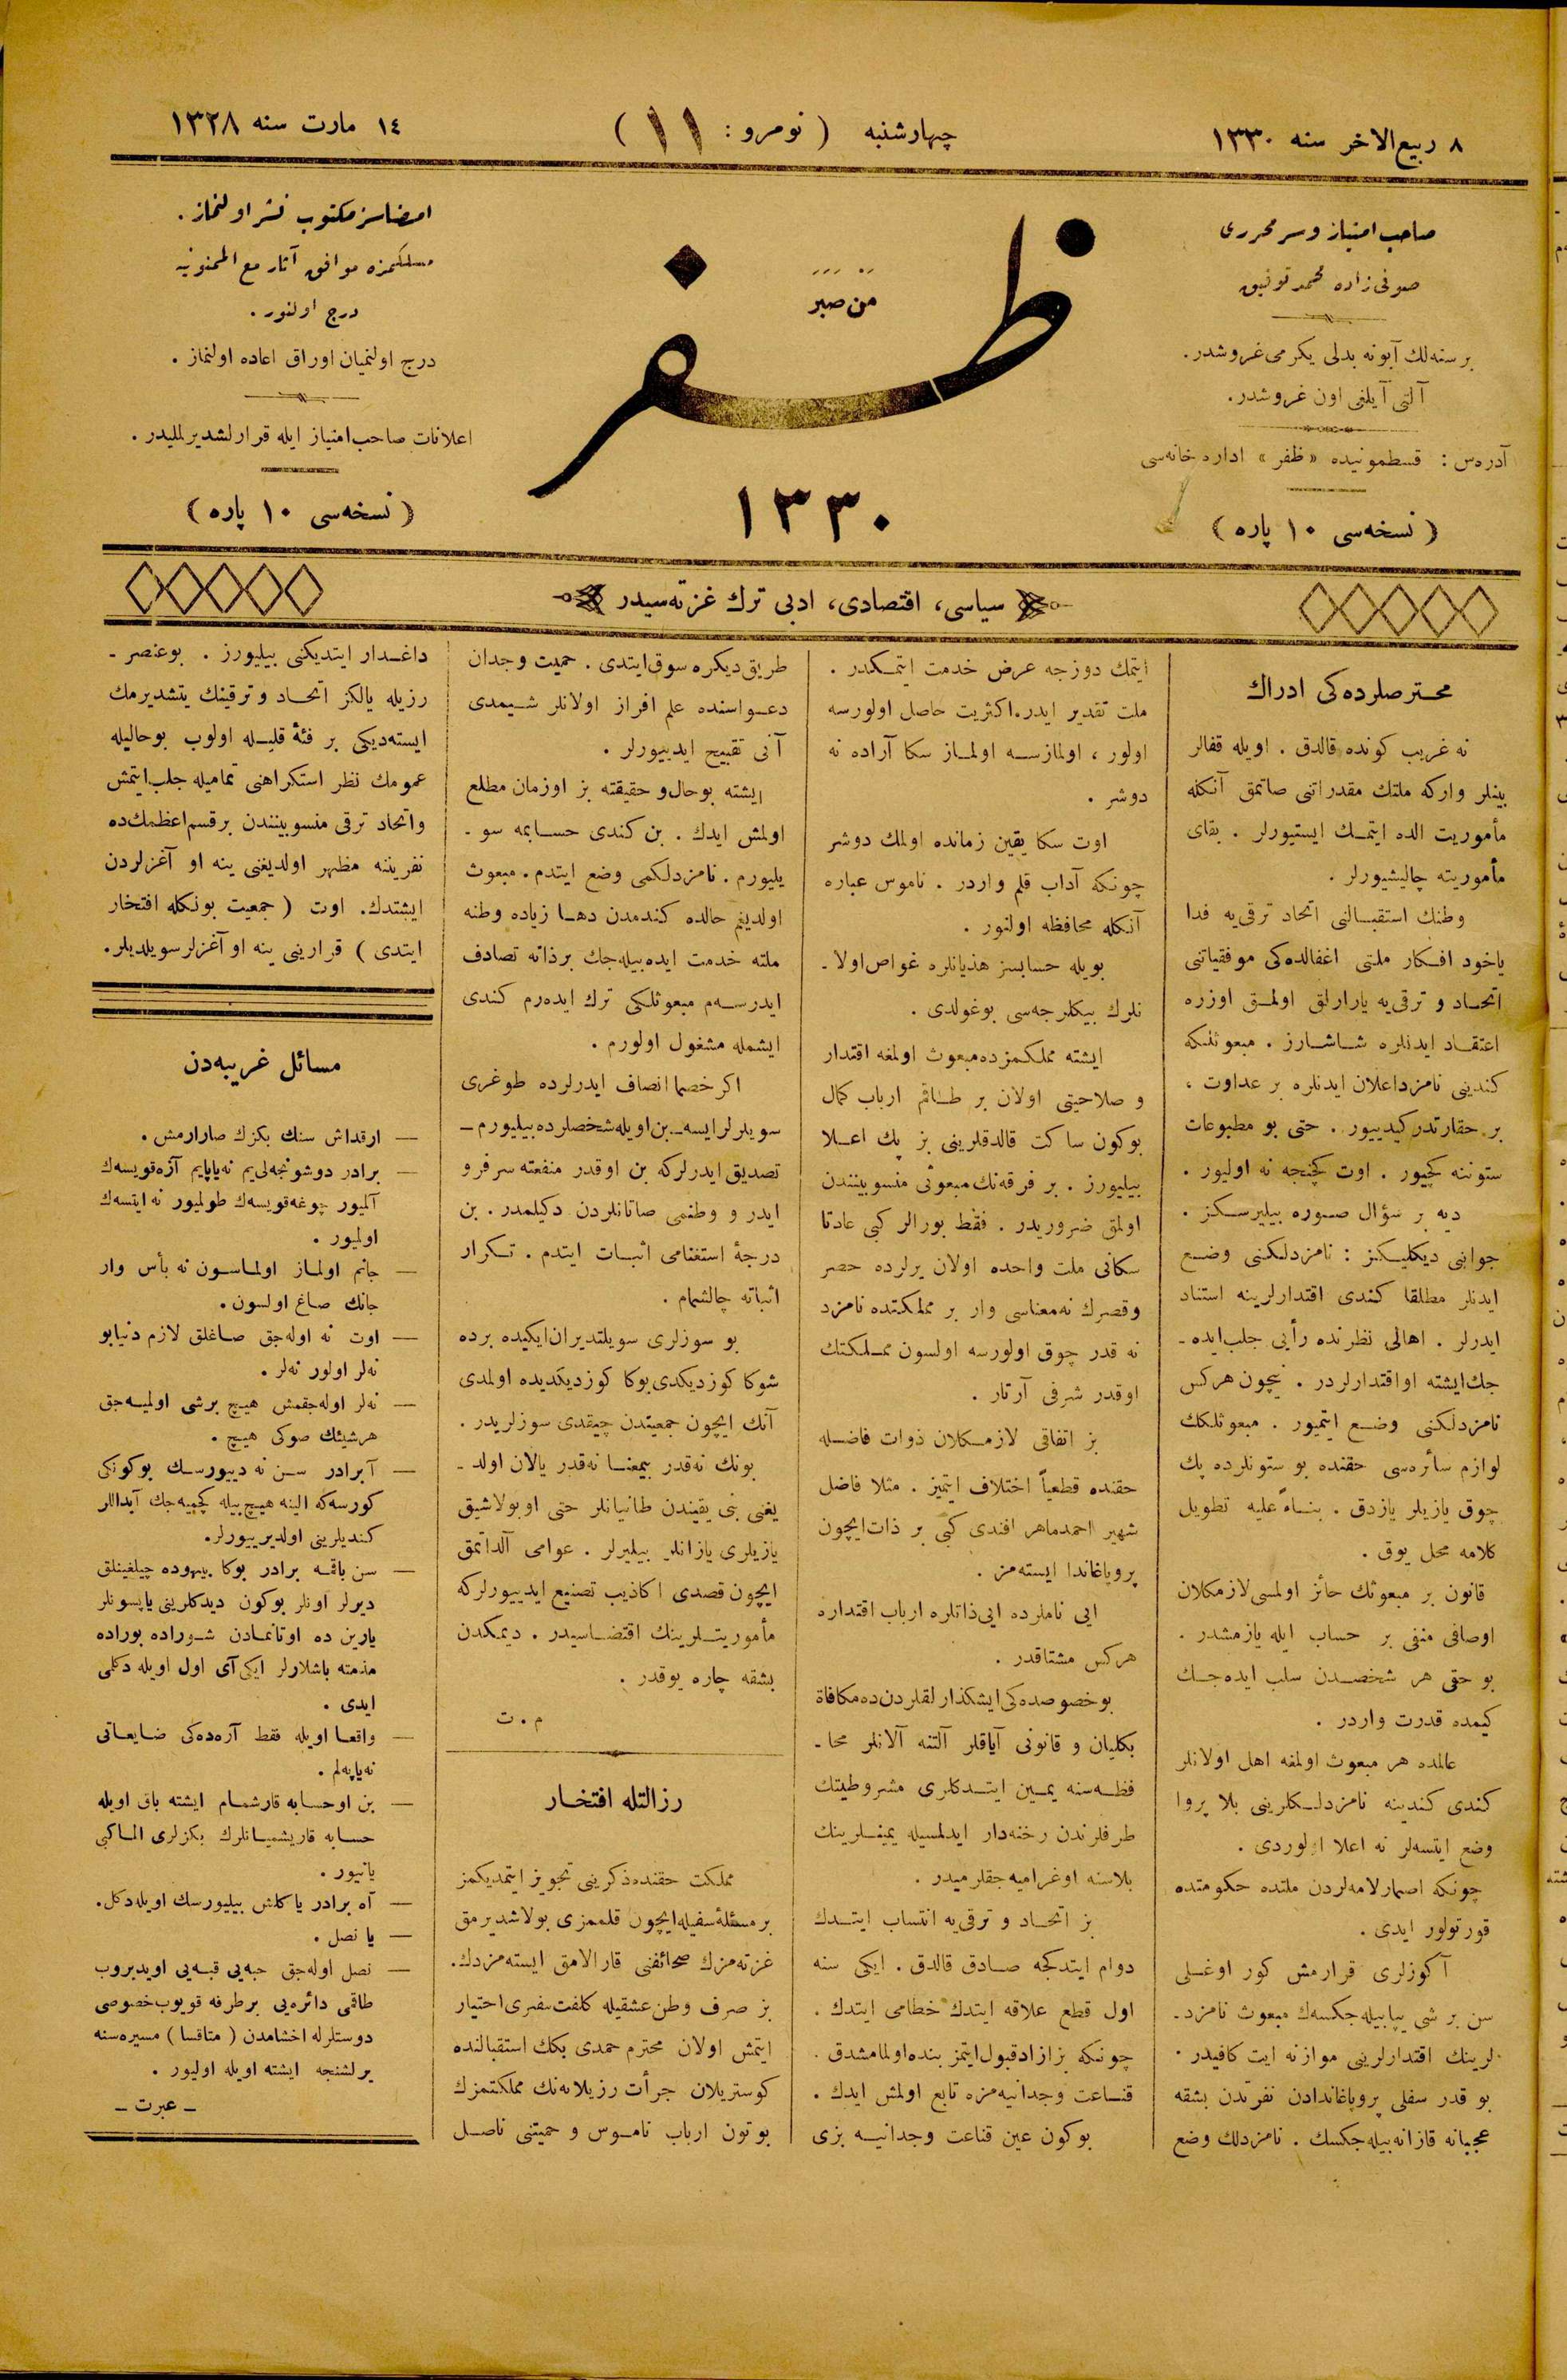 ٨ ربيع‌الاخر سنه ١٣٣٠
چهارشنبه ( نومرو : ١١ )
١٤ مارت سنه ١٣٢٨
صاحب امتياز و سر محررى
صوفى زاده محمد توفيق
بر سنه‌لك آبونه بدلى يكرمى غروشدر .
آلتى آيلغى اون غروشدر .
آدره‌س : قسطمونيده « ظفر » اداره خانه‌سى
( نسخه‌سى ١٠ پاره )
مَنْ صَبَرَ
ظفر
١٣٣٠
امضاسز مكتوب نشر اولنماز .
مسلكمزه موافق آثار مع الممنونيه
درج اولنور .
درج اولنميان اوراق اعاده اولنماز .
اعلانات صاحب امتياز ايله قرارلشديرلمليدر .
( نسخه‌سى ١٠ پاره )
سياسى ، اقتصادى ، ادبى ترك غزته‌سيدر
محترصلرده‌كى ادراك
نه غريب كونده قالدق . اويله قفالر
بينلر واركه ملتك مقدراتنى صاتمق آنكله
مأموريت الده ايتمك ايستيورلر . بقاى
مأموريته چاليشيورلر .
وطنك استقبالنى اتحاد ترقى‌يه فدا
ياخود افكار ملتى اغفالده‌كى موفقياتنى
اتحاد و ترقى‌يه يارارلق اولمق اوزره
اعتقاد ايدنلره شاشارز . مبعوثلكه
كندينى نامزد اعلان ايدنلره بر عداوت ،
بر حقارتدر كيدييور . حتى بو مطبوعات
ستوننه كچيور . اوت كچنجه نه اوليور .
ديه بر سؤال صوره بيليرسكز .
جوابنى ديكليكز : نامزدلكنى وضع
ايدنلر مطلقا كندى اقتدارلرينه استناد
ايدرلر . اهالى نظرنده رأيى جلب ايده -
جك ايشته او اقتدارلردر . نيچون هركس
نامزدلكنى وضع ايتميور . مبعوثلكك
لوازم سائره‌سى حقنده بو ستونلرده پك
چوق يازيلر يازدق . بناءً عليه تطويل
كلامه محل يوق .
قانون بر مبعوثك حائز اولمسى لازمكلان
اوصافى منفى بر حساب ايله يازمشدر .
بو حقى هر شخصدن سلب ايده‌جك
كيمده قدرت واردر .
عالمده هر مبعوث اولمغه اهل اولانلر
كندى كندينه نامزدلكلرينى بلا پروا
وضع ايتسه‌لر نه اعلا اولوردى .
چونكه اصمارلامه‌لردن ملتده حكومتده
قورتولور ايدى .
آ كوزلرى قرارمش كور اوغلى
سن بر شى يپابيله‌جكسه‌ك مبعوث نامزد -
لرينك اقتدارلرينى موازنه ايت كافيدر .
بو قدر سفلى پروپاغاندادن نفرتدن بشقه
عجبانه قازانه‌بيله‌جكسك . نامزدلك وضع
ايتمك دوزجه عرض خدمت ايتمكدر .
ملت تقدير ايدر . اكثريت حاصل اولورسه
اولور ، اولمازسه اولماز سكا آراده نه
دوشر .
اوت سكا يقين زمانده اولمك دوشر
چونكه آداب قلم واردر . ناموس عباره
آنكله محافظه اولنور .
بويله حسابسز هذيانلره غواص اولا -
نلرك بيكلرجه‌سى بوغولدى .
ايشته مملكمزده مبعوث اولمغه اقتدار
و صلاحيتى اولان بر طاقم ارباب كمال
بوكون ساكت قالدقلرينى بز پك اعلا
بيليورز . بر فرقه‌نك مبعوثى منسوبيتندن
اولمق ضروريدر . فقط بورالر كبى عادتا
سكانى ملت واحده اولان يرلرده حصر
و قصرك نه‌معناسى وار بر مملكتده نامزد
نه قدر چوق اولورسه اولسون مملكتك
او قدر شرفى آرتار .
بز اتفاقى لازمكلان ذوات فاضله
حقنده قطعياً اختلاف ايتميز . مثلا فاضل
شهير احمد ماهر افندى كبى بر ذات ايچون
پروپاغاندا ايسته‌مز .
ايى ناملرده ايى ذاتلره ارباب اقتداره
هركس مشتاقدر .
بو خصوصده‌كى ايشكذارلقلردن ده مكافاة
بكليان و قانونى آياقلر آلتنه آلانلر محا -
فظه‌سنه يمين ايتدكلرى مشروطيتك
طرفلرندن رخنه‌دار ايدلمسيله يمينلرينك
بلاسنه اوغراميه‌جقلرميدر .
بز اتحاد و ترقى‌يه انتساب ايتدك
دوام ايتدكجه صادق قالدق . ايكى سنه
اول قطع علاقه ايتدك خطامى ايتدك .
چونكه بز ازاد قبول ايتمز بنده اولمامشدق .
قناعت وجدانيه‌مزه تابع اولمش ايدك .
بوكون عين قناعت وجدانيه بزى
طريق ديكره سوق ايتدى . حميت وجدان
دعواسنده علم افراز اولانلر شيمدى
آنى تقبيح ايدييورلر .
ايشته بو حال و حقيقته بز او زمان مطلع
اولمش ايدك . بن كندى حسابمه سو -
يليورم . نامزدلكمى وضع ايتدم . مبعوث
اولديغم حالده كندمدن دها زياده وطنه
ملته خدمت ايده‌بيله‌جك بر ذاته تصادف
ايدرسه‌م مبعوثلكى ترك ايده‌رم كندى
ايشمله مشغول اولورم .
اكر خصما انصاف ايدرلرده طوغرى
سويلرلر ايسه ـ بن اويله شخصلرده بيليورم ـ
تصديق ايدرلركه بن اوقدر منفعته سرفرو
ايدر و وطنمى صاتانلردن دكيلمدر . بن
درجهٔ استغنامى اثبات ايتدم . تكرار
اثباته چالشمام .
بو سوزلرى سويلتديران ايكيده برده
شوكا كوز ديكدى بوكا كوز ديكديده اولمدى
آنك ايچون جمعيتدن چيقدى سوزلريدر .
بونك نه‌قدر بيمعنا نه‌قدر يالان اولد -
يغنى بنى يقيندن طانيانلر حتى او بولاشيق
يازيلرى يازانلر بيليرلر . عوامى آلداتمق
ايچون قصدى اكاذيب تصنيع ايدييورلركه
مأموريتلرينك اقتضاسيدر . ديمكدن
بشقه چاره يوقدر .
م . ت
رزالتله افتخار
مملكت حقنده ذكرينى تجويز ايتمديكمز
بر مسئلهٔ سفيله ايچون قلممزى بولاشديرمق
غزته‌مزك صحائفنى قارالامق ايسته‌مزدك .
بز صرف وطن عشقيله كلفت سفرى اختيار
ايتمش اولان محترم حمدى بكك استقبالنده
كوستريلان جرأت رزيلانه‌نك مملكتمزك
بوتون ارباب ناموس و حميتنى ناصل
داغدار ايتديكنى بيليورز . بو عنصر -
رزيله يالكز اتحاد و ترقينك يتشديرمك
ايسته‌ديكى بر فئهٔ قليله اولوب بو حاليله
عمومك نظر استكراهنى تماميله جلب ايتمش
و اتحاد ترقى منسوبيتندن بر قسم اعظمك ده
نفريننه مظهر اولديغنى ينه او آغزلردن
ايشتدك . اوت ( جمعيت بونكله افتخار
ايتدى ) قرارينى ينه او آغزلر سويلديلر .
مسائل غريبه‌دن
— ارقداش سنك بكزك صارارمش .
— برادر دوشونجه‌لى‌يم نه‌ياپايم آزه‌قويسه‌ك
آلميور چوغه قويسه‌ك طولميور نه ايتسه‌ك
اولميور .
— جانم اولماز اولماسون نه بأس وار
جانك صاغ اولسون .
— اوت نه اوله‌جق صاغلق لازم دنيابو
نه‌لر اولور نه‌لر .
— نه‌لر اوله‌جقمش هيچ برشى اولميه‌جق
هرشيئك صوكى هيچ .
— آ برادر سن نه دييورسك بوكونكى
كورسه‌كه الينه هيچ بيله كچميه‌جك آيداللر
كنديلرينى اولديرييورلر .
— سن باقمه برادر بوكا بيهوده چيلغينلق
ديرلر اونلر بوكون ديدكلرينى ياپسونلر
يارين ده اوتانمادن شوراده بوراده
مذمته باشلارلر ايكى آى اول اويله دكلمى
ايدى .
— واقعا اويله فقط آره‌ده‌كى ضايعاتى
نه‌ياپه‌لم .
— بن او حسابه قارشمام ايشته باق اويله
حسابه قاريشميانلرك بكزلرى الماكبى
يانيور .
— آه برادر ياكلش بيليورسك اويله دكل .
— يا نصل .
— نصل اوله‌جق حبه‌يى قبه‌يى اويديروب
طاقمى دائره‌يى بر طرفه قويوب خصوصى
دوستلرله اخشامدن ( متاقسا ) مسيره‌سنه
يرلشنجه ايشته اويله اوليور .
ـ عبرت ـ